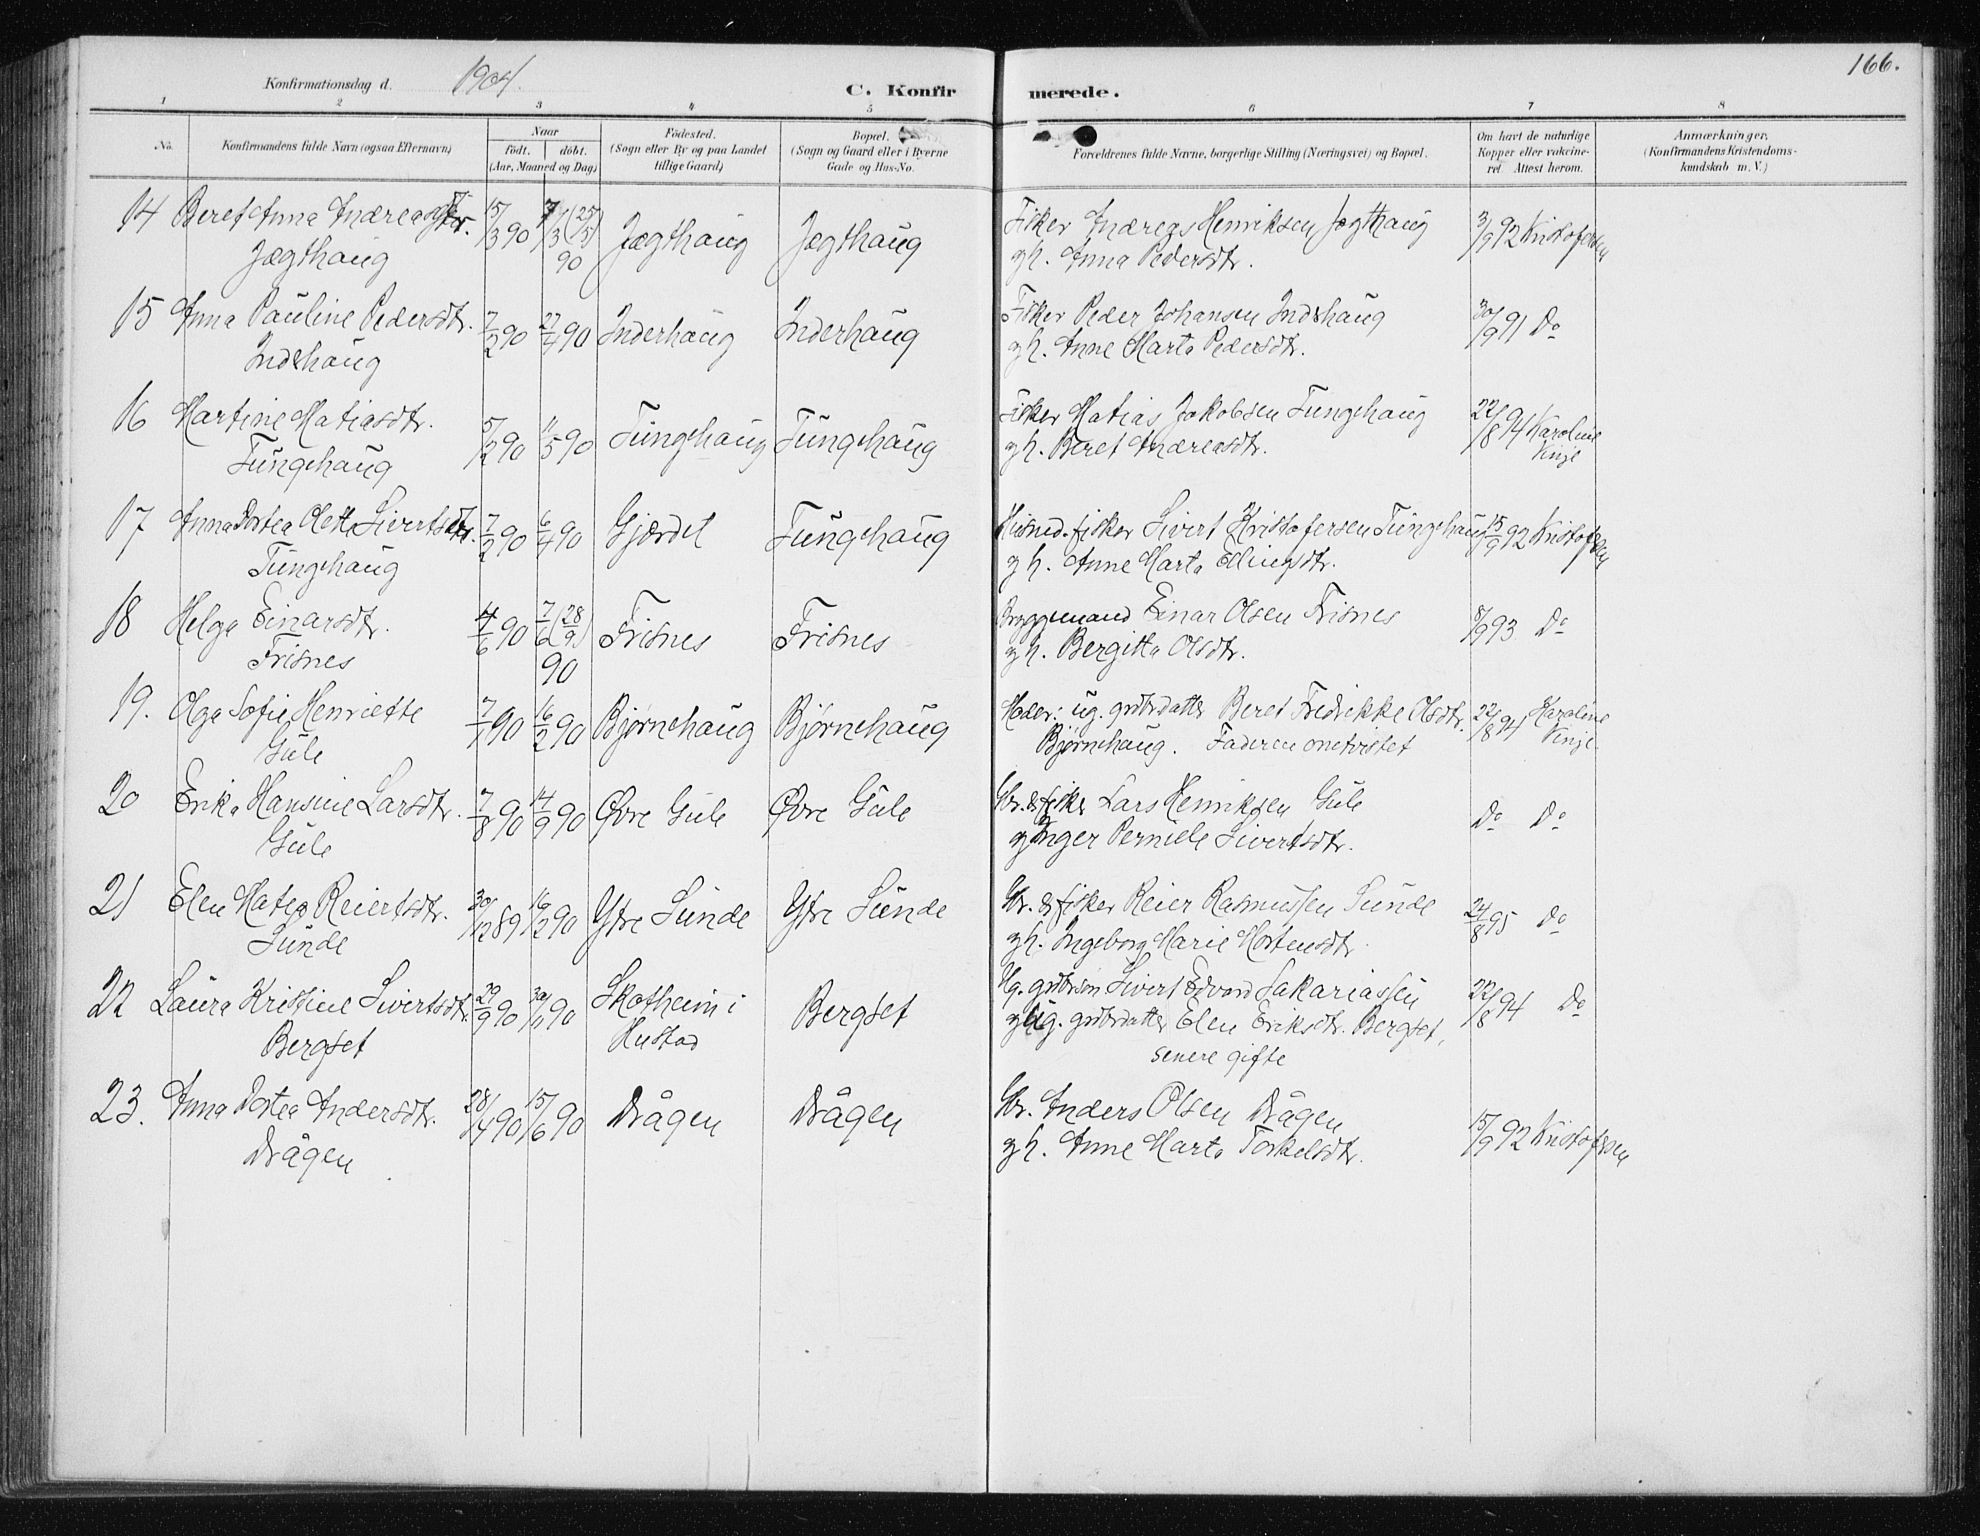 Konfirmationsdag d. 1904. C. Konfirmerede. 166.
1 2 3 4 5 6 7 8
No. Konfirmandens fulde Navn (ogsaa Efternavn) Naar født. døbt. (Aar, Maaned og Dag) Fødested. (Sogn eller By og paa Landet tillige Gaard) Bopæl. (Sogn og Gaard eller i Byerne Gade og Hus-No. Forældrenes fulde Navne, borgerlige Stilling (Næringsvei) og Bopæl. Om havt de naturlige Kopper eller vakcineret Attest herom. Anmærkninger. (Konfirmandens Kristendomskundskab m. V.)
14 Beret Anna Andreasdtr. 15/3 90 7/3 (25/5) 90 Jægthaug Jægthaug Fisker Andreas Henriksen Jægthaug 3/9 92 Kristofersen
Jægthaug gh. Anna Pedersdtr.
15 Anna Pauline Pedersdtr. 7/2 90 27/4 90 Inderhaug Inderhaug Fisker Peder Johansen Inderhaug 30/9 91 Do
Inderhaug gh. Anne Marta Pedersdtr.
16 Martine Matiasdtr. 5/2 90 11/5 90 Tungehaug Tungehaug Fisker Matias Jakobsen Tungehaug 22/8 94 Karoline Vinje
Tungehaug gh. Beret Andreasdtr.
17 Anna Dortea Olette Sivertsdtr. 7/2 90 6/4 90 Gjærdet Tungehaug Husmd. fisker Sivert Kristofersen Tungehaug 15/9 92 Kristofersen
Tungehaug gh. Anne Marta Ellingsdtr.
18 Helga Einarsdtr. 4/6 90 7/6 (28/9) 90 Frisnes Frisnes Bryggemand Einar Olsen Frisnes 8/9 93 Do
Frisnes gh. Bergitta Olsdtr.
19. Olga Sofie Henriette 7/1 90 16/2 90 Bjørnehaug Bjørnehaug Moder: ug. grdbrdatter Beret Fredrikke Olsdtr. 22/8 94 Karoline Vinje
Gule Bjørnehaug. Faderen
20 Erika Hansine Larsdtr. 7/8 90 14/9 90 Øvre Gule Øvre Gule Gbr. & fisker Lars Henriksen Gule Do Do
Gule gh Inger Pernille Sivertsdtr.
21 Elen Matea Reiertsdtr. 30/12 89 16/2 90 Ytre Sunde Ytre Sunde Gbr. & fisker Reier Rasmussen Sunde 24/8 95 Do
Sunde gh. Ingeborg Marie Mortensdtr.
22 Laura Kristine Sivertsdtr. 29/9 90 30/11 90 Skotheim i Hustad Bergset Ug. grdbrsøn Sivert Edvard Sakariassen 22/8 94 Do
Bergset g ug. grdbrdatter Elen Eriksdtr. Bergset,
senere gifte
23. Anna Dortea Andersdtr. 28/4 90 15/6 90 Drågen Drågen Gbr. Anders Olsen Drågen 15/9 92 Kristofersen
Drågen gh. Anne Marta Torkelsdtr.